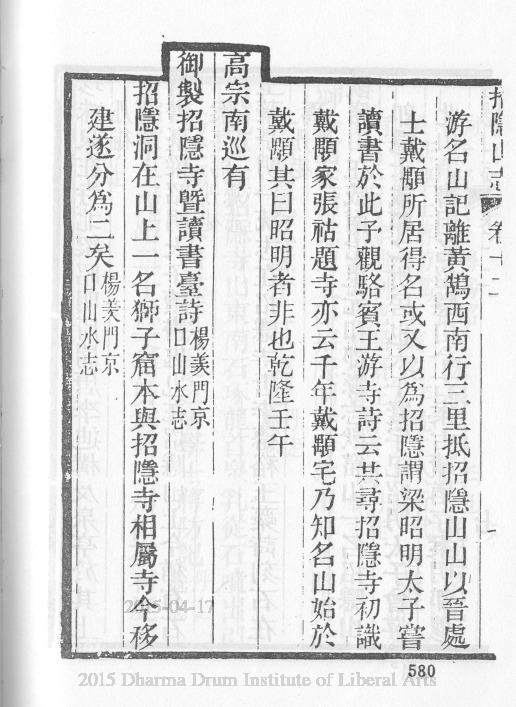 招隱山志 卷十二
游名山記離黃鵠西南行三里抵招隱山山以晉處
士戴顒所居得名或又以為招隱謂梁昭明太子嘗
讀書於此予觀駱賓王游寺詩云共尋招隱寺初識
戴顒家張祜題寺亦云千年戴顒宅乃知名山始於
戴顒其曰昭明者非也乾隆壬午
高宗南巡有
御製招隱寺暨讀書臺詩楊羨門京
口山水志
招隱洞在山上一名獅子窟本與招隱寺相屬寺今移
建遂分為二矣楊羨門京
口山水志
一
580
2015-04-17
2015 Dharma Drum Institute of Liberal Arts